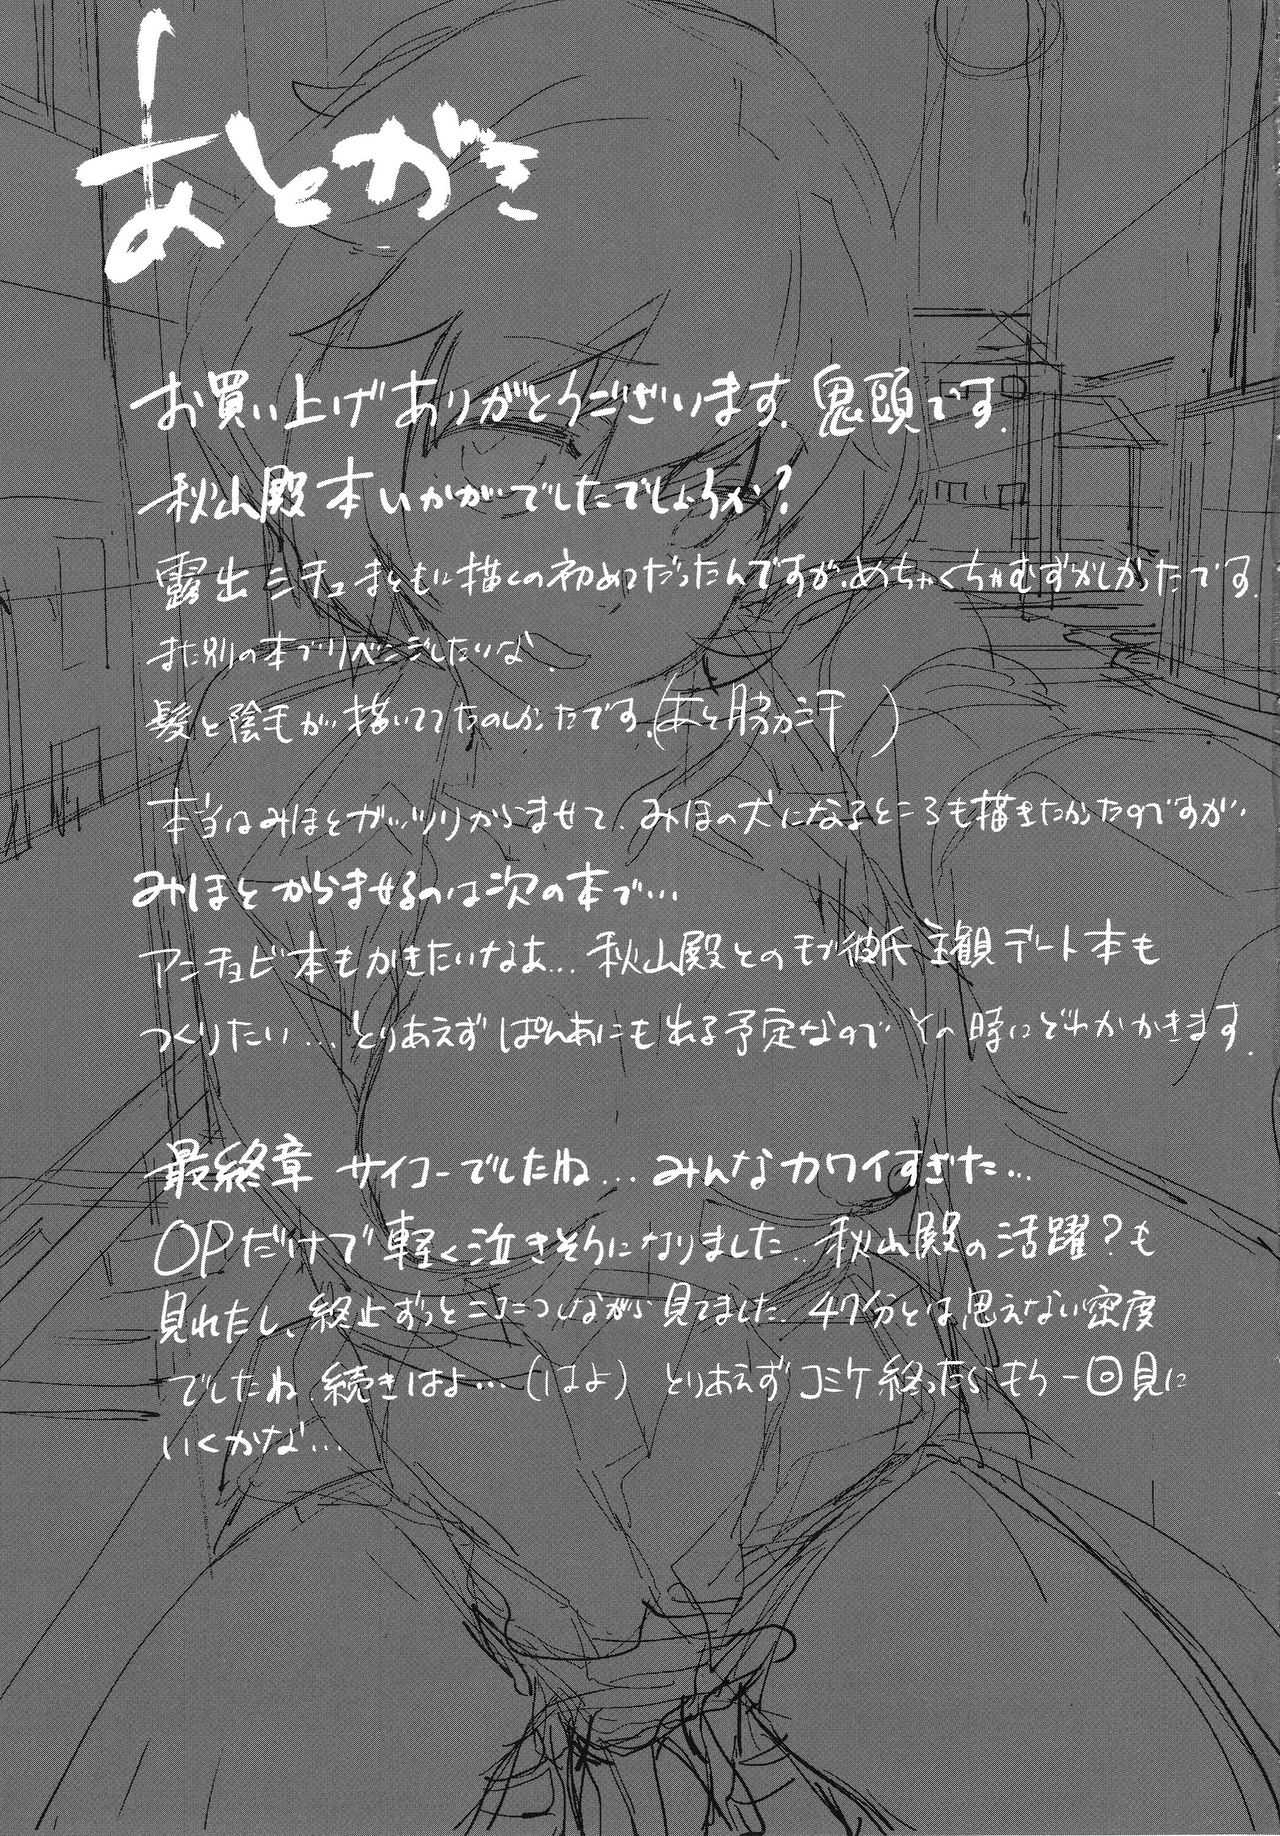 あとがき
お買い上げありがとうございます。鬼頭です。
秋山殿本いかがでしたでしょうか?
露出シチュまともに描くの初めてだったんですが、めちゃくちゃむずかしかったです。
また別の本でリベンジしたいな。
髪と陰毛が描いててたのしかったです。(あと脇汗)
本当はみほとガッツリからませて、みほの犬になるところも描きたかったのですが、
みほとからませるのは次の本で…
アンチョビ本もかきたいなぁ… 秋山殿とのモブ彼氏主観デート本も
つくりたい… とりあえずぱんあにも出る予定なのでその時にどれかかきます。
最終章 サイコーでしたね… みんなカワイすぎた…
OPだけで軽く泣きそうになりました.. 秋山殿の活躍?も
見れたし、終止ずっとニコニコしながら見てました。47分とは思えない密度
でしたね、続きはよ…(はよ) とりあえずコミケ終ったらもう一回見に
いくかな…